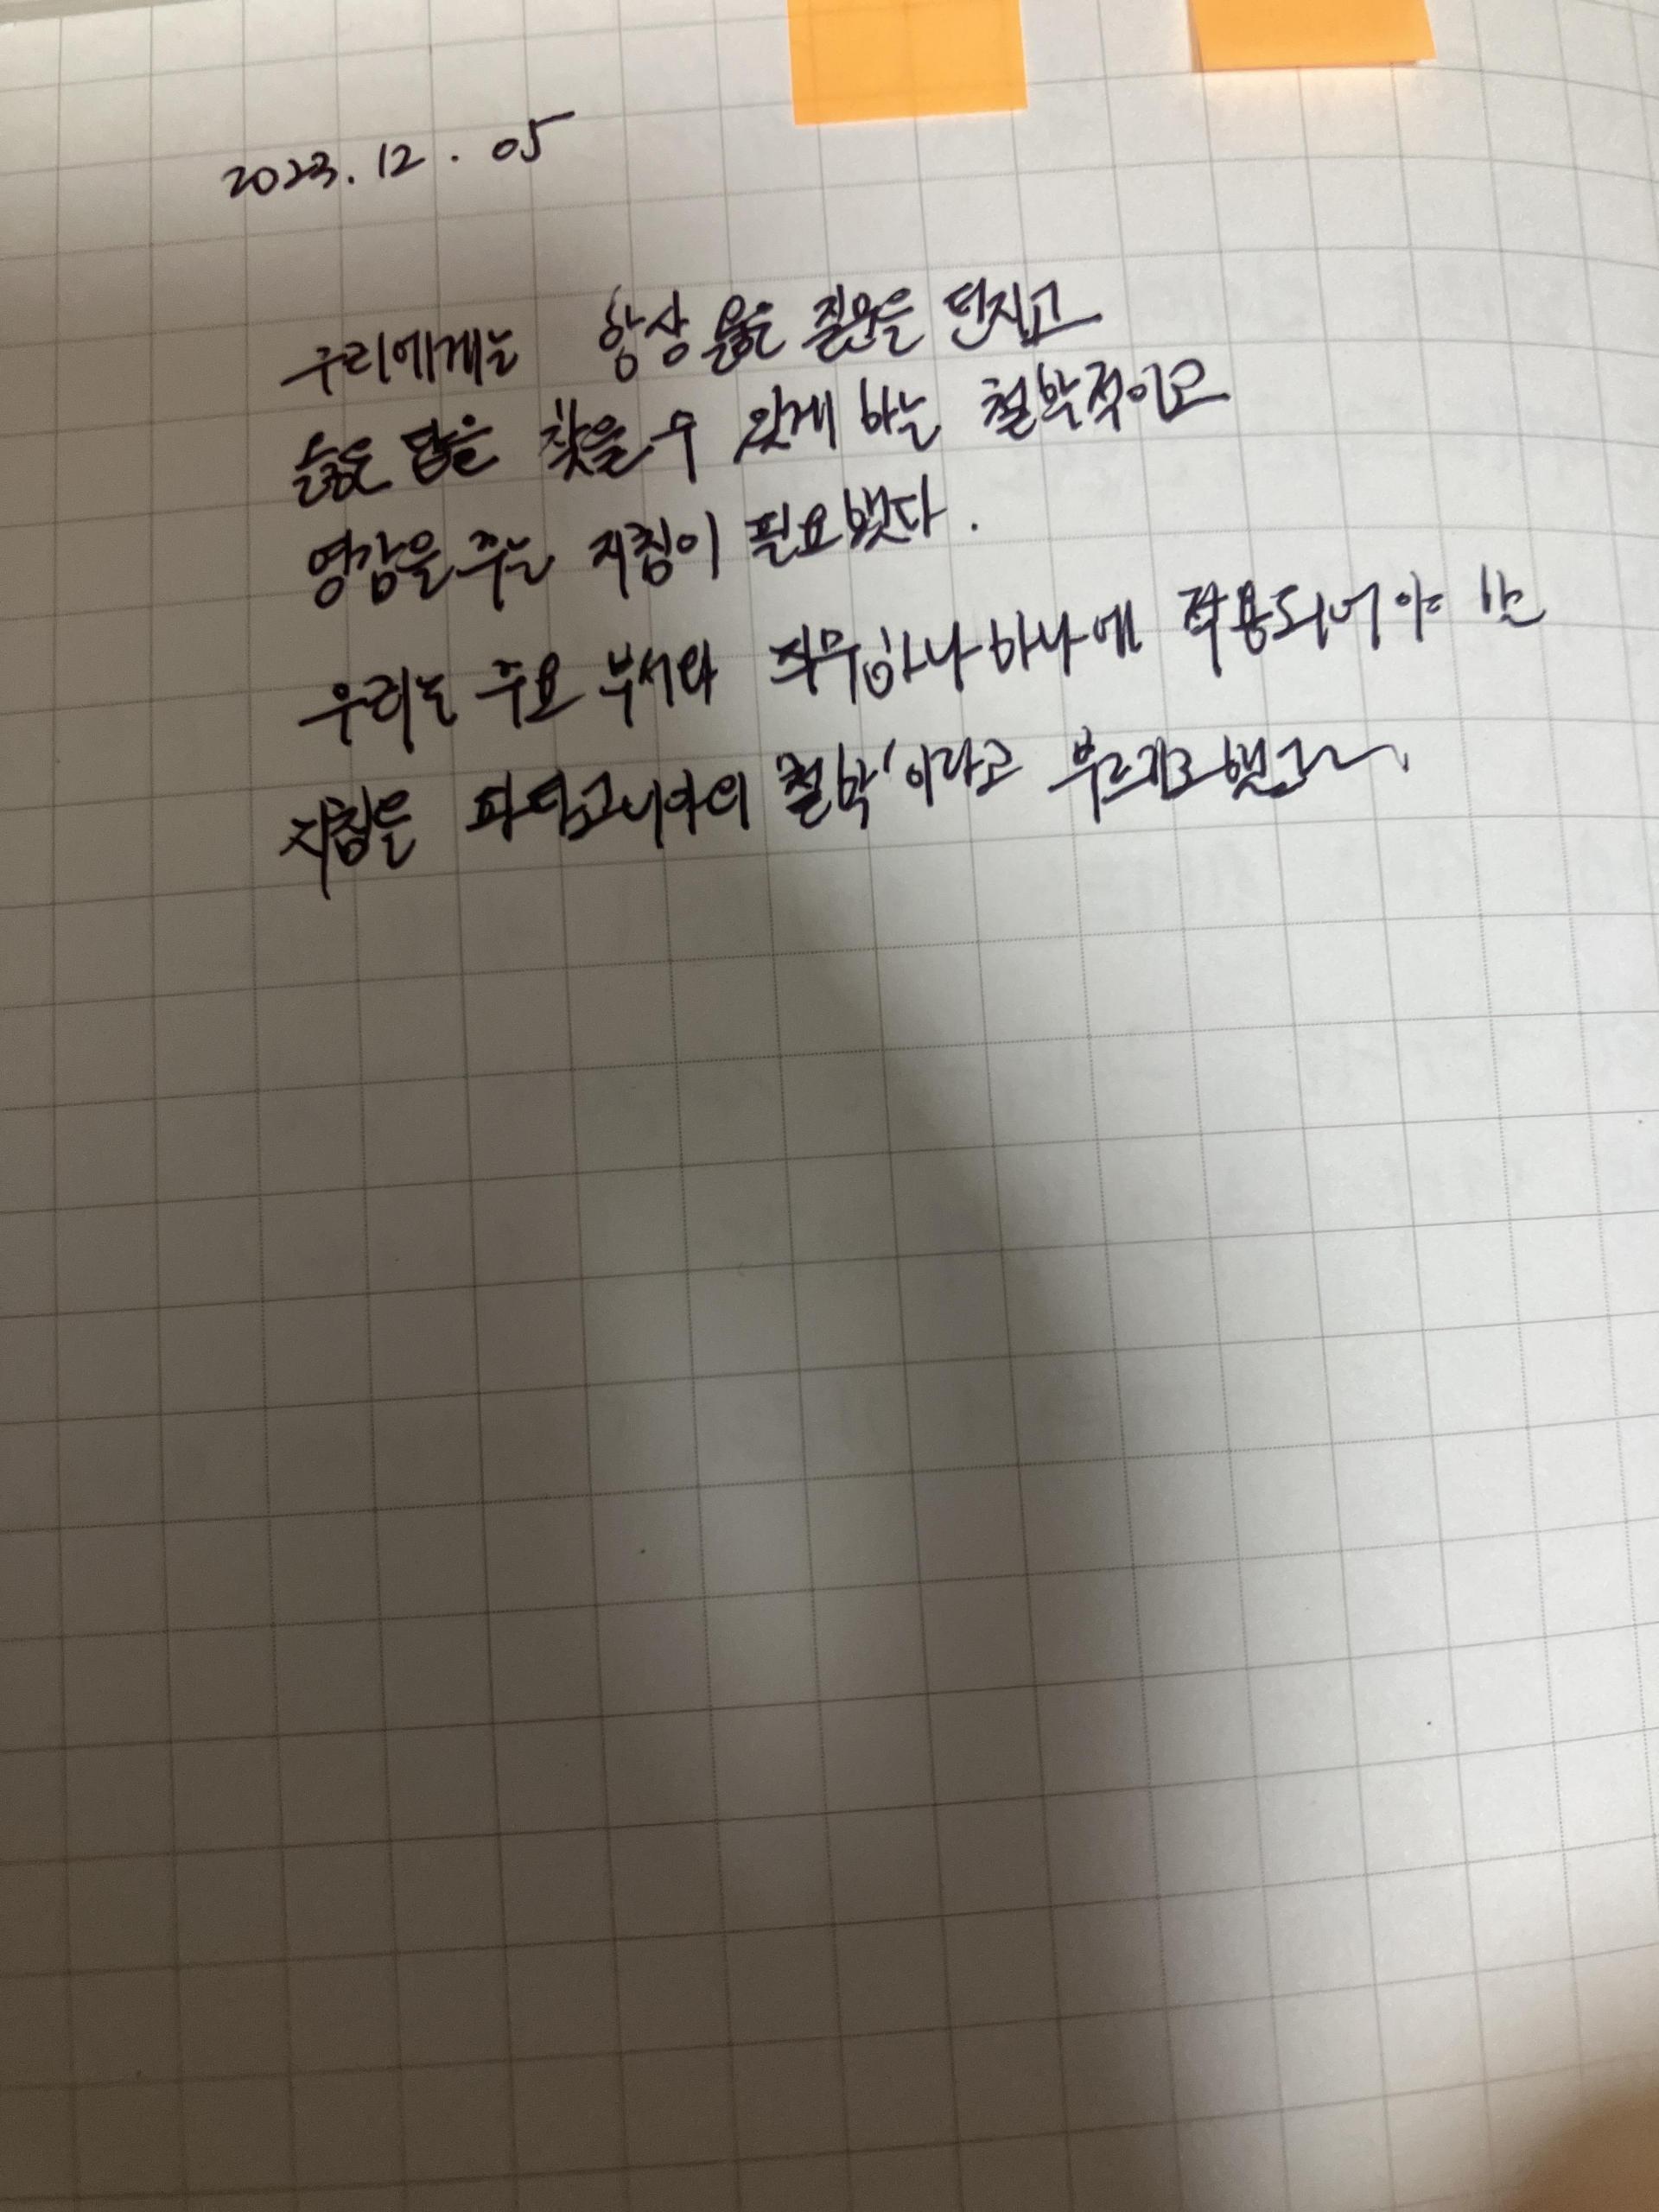 2023. 12. 05
우리에게는 항상 옳은 질문을 던지고
옳은 답을 찾을 수 있게 하는 철학적이고
영감을 주는 지침이 필요했다.
우리는 주요 부서와 직무 하나하나에 적용되어야 한
지침을 파타고니아의 '철학'이라고 부르기로 했다.